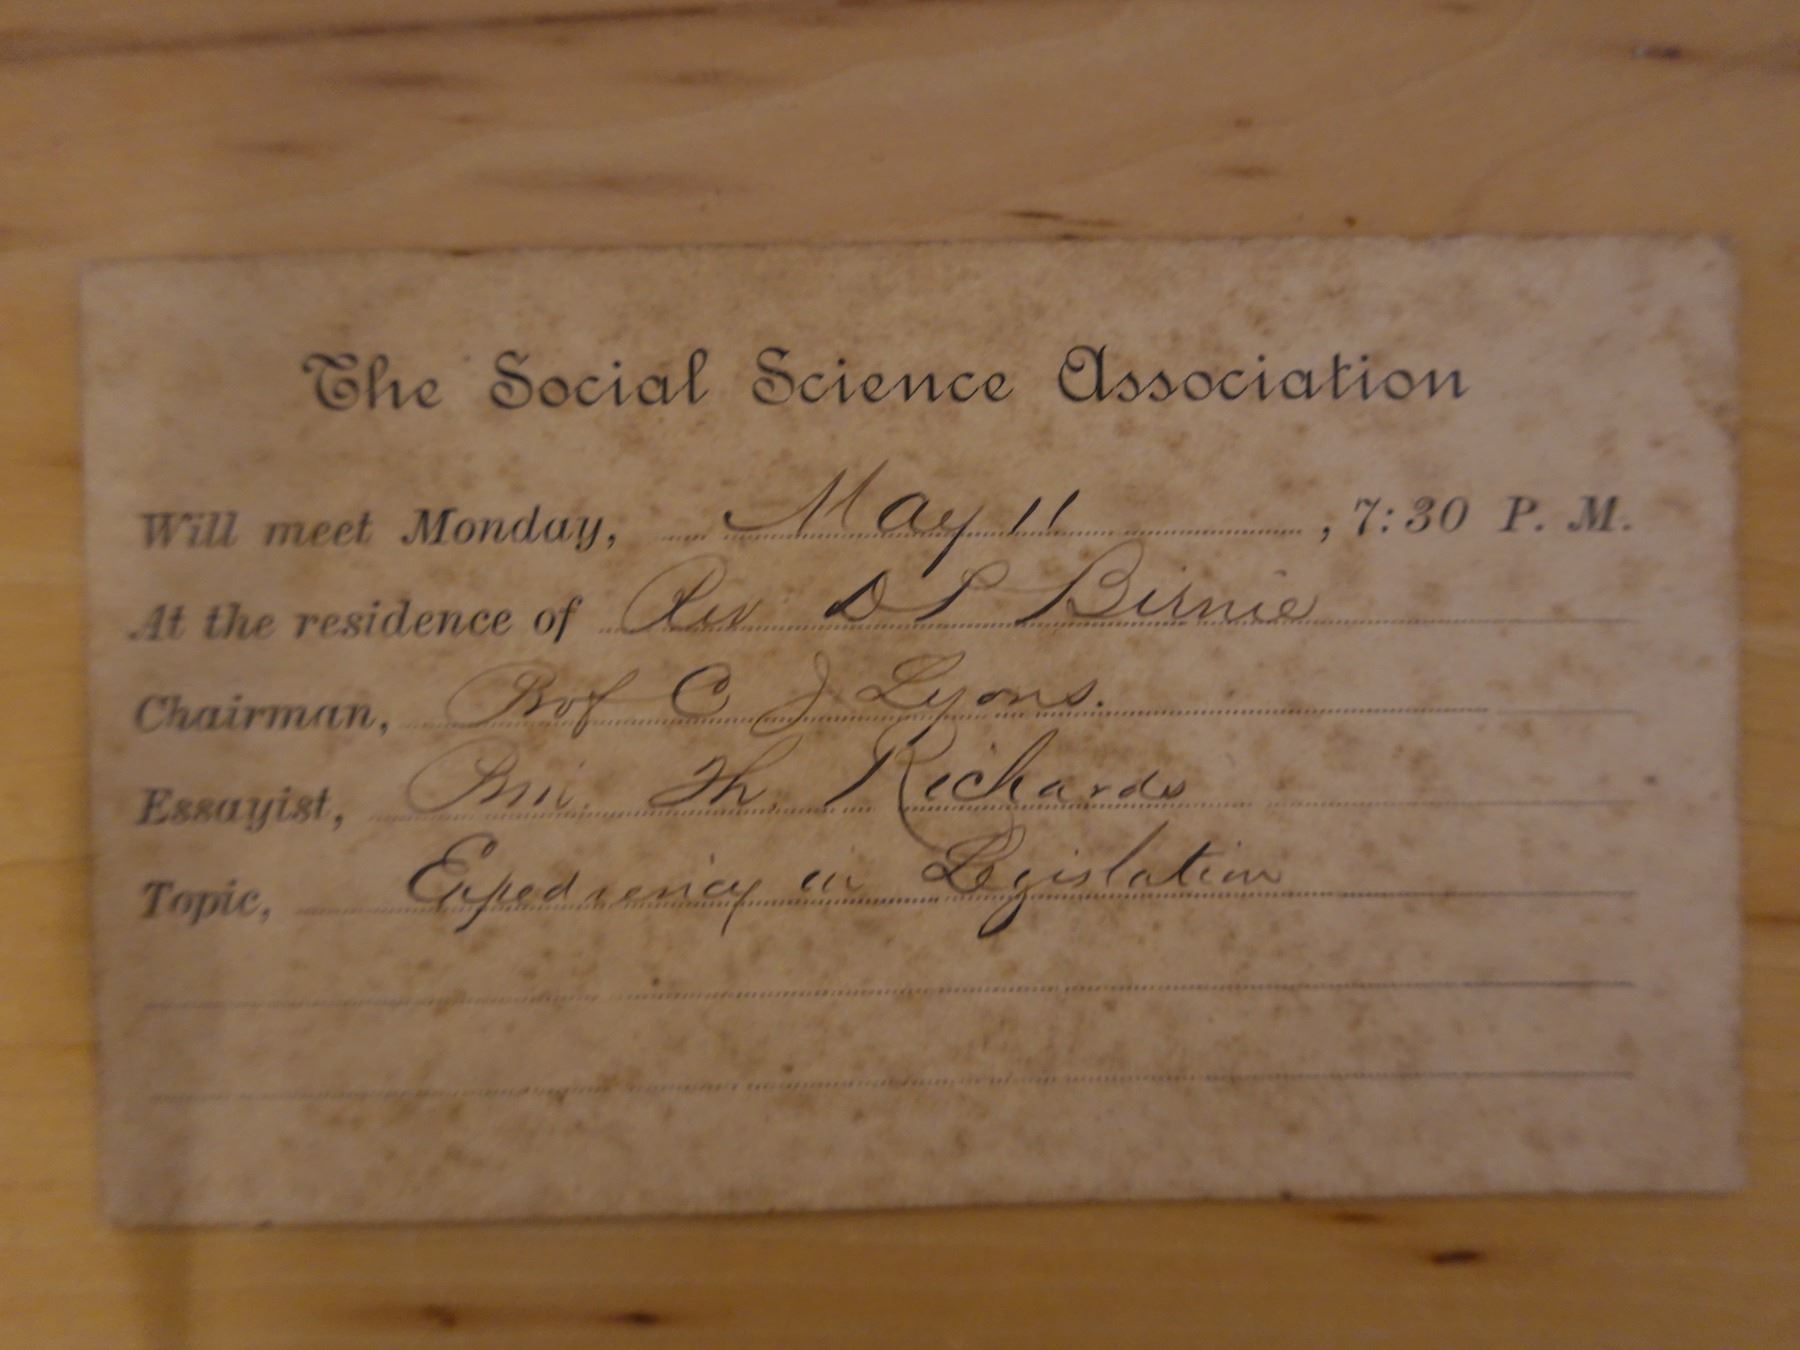 The Social Science Association
Will meet Monday, May 11, 7:30 P. M.
At the residence of Rev D P Birnie
Chairman, Prof C J Lyons.
Essayist, Pri. Th. Richards
Topic, Expediency in Legislation